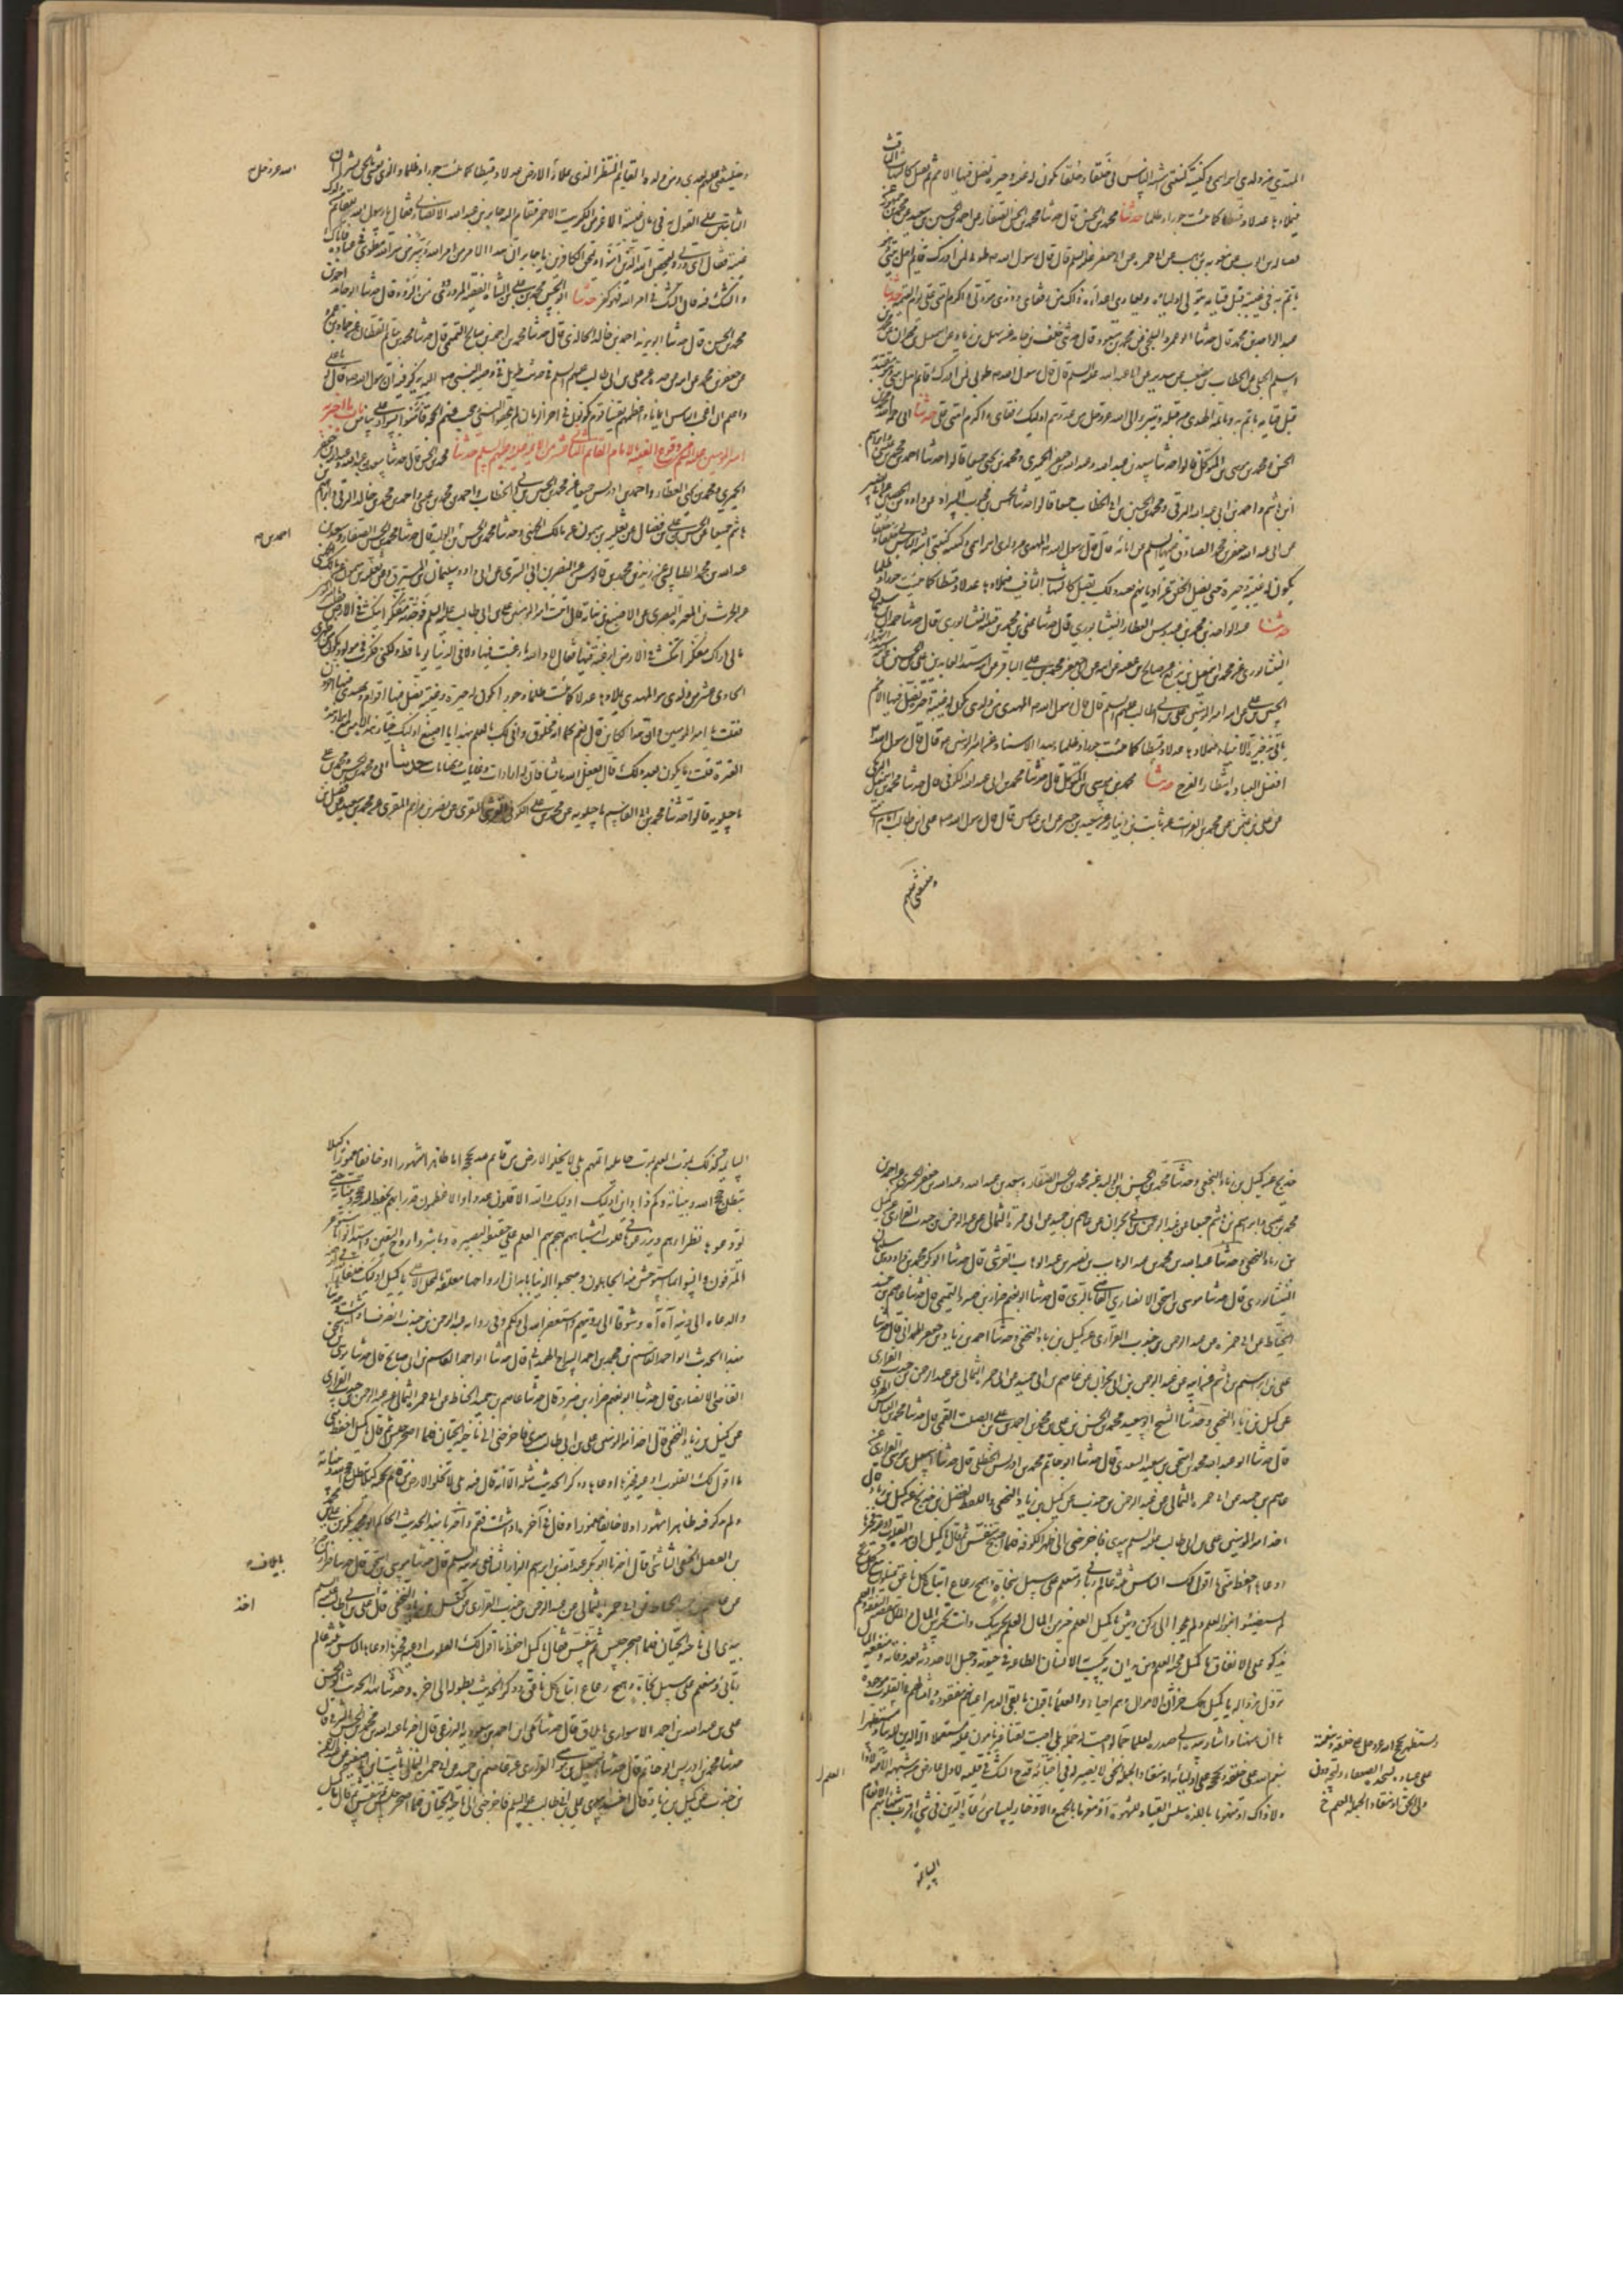 المهدي من ولدي اسمه اسمي وكنيته كنيتي اشبه الناس بي خلقا وخلقا يكون له غيبة وحيرة تضل فيها الامم ثم يقبل كالشهاب الثاقب
فيملاءها عدلا وقسطا كما ملئت جورا وظلما حدثنا محمد بن الحسن قال حدثنا محمد بن الحسن الصفار عن احمد بن الحسين بن سعيد عن محمد بن جمهور
عن فضالة بن ايوب عن معوية بن وهب عن ابي حمزة عن ابي جعفر عليه السلم قال قال رسول الله طوبى لمن ادرك قايم اهل بيتي وهو
ياتم به في غيبته قبل قيامه ويتولى اولياءه ويعادي اعداءه ذاك من رفقاي وذوي مودتي واكرم امتي علي يوم القيمة حدثنا
عبد الواحد بن محمد قال حدثنا ابو عمرو البلخي عن محمد بن مسعود قال حدثني خلف بن حامد عن سهل بن زياد عن اسمعيل بن مهران عن محمد بن
اسلم الجبلي عن الخطاب بن مصعب عن سدير عن ابي عبد الله عليه السلم قال قال رسول الله طوبى لمن ادرك قايم اهل بيتي وهو مقتد به
قبل قيامه ياتم به وبائمة الهدى من قبله ويتبرء الى الله عز وجل من عدوهم اوليك رفقاي واكرم امتي علي حدثنا ابي ومحمد بن
الحسن ومحمد بن موسى بن المتوكل قالوا حدثنا سعد بن عبد الله وعبد الله بن جعفر الحميري ومحمد بن يحيى جميعا قالوا حدثنا احمد بن محمد بن عيسى وابرهيم
ابن هاشم واحمد بن ابي عبد الله البرقي ومحمد بن الحسين بن ابي الخطاب جميعا قالوا حدثنا الحسن بن محبوب السراد عن داود بن الحصين عن ابي بصير
عن ابي عبد الله جعفر بن محمد الصادق عليهما السلم عن ابائه قال قال رسول الله المهدي من ولدي اسمه اسمي وكنيته كنيتي اشبه الناس بي خلقا وخلقا
يكون له غيبة وحيرة حتى يضل الخلق عن اديانهم فعند ذلك يقبل كالشهاب الثاقب فيملاءها عدلا وقسطا كما ملئت جورا وظلما
حدثنا عبد الواحد بن محمد بن عبدوس العطار النيشابوري قال حدثنا علي بن محمد بن قتيبة النيشابوري قال حدثنا حمدان بن سليمان
النيشابوري عن محمد بن اسمعيل بن بزيع عن صالح بن عقبة عن ابيه عن ابي جعفر محمد بن علي الباقر عن ابيه سيد العابدين علي بن الحسين عن ابيه
الحسين بن علي عن ابيه امير المومنين علي بن ابي طالب عليهم السلم قال قال رسول الله المهدي من ولدي يكون له غيبة وحيرة تضل فيها الامم
ياتي بذخيرة الانبياء فيملاءها عدلا وقسطا كما ملئت جورا وظلما وبهذا الاسناد عن امير المومنين قال قال رسول الله
افضل العبادة انتظار الفرج حدثنا محمد بن موسى بن المتوكل قال حدثنا محمد بن ابي عبد الله الكوفي قال حدثنا محمد بن اسمعيل البرمكي
عن علي بن عثمن عن محمد بن الفرات عن ثابت بن دينار عن سعيد بن جبير عن ابن عباس قال قال رسول الله علي بن ابي طالب امام امتي
وخليفتي عليهم
وخليفتي عليهم بعدي ومن ولده القايم المنتظر الذي يملاء الله به الارض عدلا وقسطا كما ملئت جورا وظلما والذي بعثني بالحق بشيرا ان
الله عز وجل
الثابتين على القول به في زمان غيبته لاعز من الكبريت الاحمر فقام اليه جابر بن عبد الله الانصاري فقال يا رسول الله وللقايم من ولدك
غيبة فقال اي وربي وليمحص الله الذين امنوا ويمحق الكافرين يا جابر ان هذا الامر من امر الله وسر من سر الله مطوي عن عباده فاياك
والشك فيه فان الشك في امر الله فهو كفر حدثنا ابو الحسن محمد بن علي بن الشاه الفقيه المروروذي بمرو الروذ قال حدثنا ابو حامد احمد بن
محمد بن الحسين قال حدثنا ابو يزيد احمد بن خالد الخالدي قال حدثنا محمد بن احمد بن صالح التميمي قال حدثنا محمد بن حاتم القطان عن حماد بن عمرو
عن جعفر بن محمد عن ابيه عن جده عن علي بن ابي طالب عليهم السلم في حديث طويل في وصية النبي يذكر فيها ان رسول الله قال له يا علي
واعلم ان اعجب الناس ايمانا واعظمهم يقينا قوم يكونون في اخر الزمان لم يلحقوا النبي وحجب عنهم الحجة فآمنوا بسواد على بياض باب ما اخبر به
امير المومنين عليه السلم من وقوع الغيبة بالامام القائم الثاني عشر من الائمة عليهم السلم حدثنا محمد بن الحسن قال حدثنا سعد بن عبد الله وعبد الله بن جعفر
الحميري ومحمد بن يحيى العطار واحمد بن ادريس جميعا عن محمد بن الحسين بن ابي الخطاب واحمد بن محمد بن عيسى واحمد بن محمد بن خالد البرقي وابرهيم بن
هاشم جميعا عن الحسن بن علي بن فضال عن ثعلبة بن ميمون عن مالك الجهني وحدثنا محمد بن الحسن بن الوليد قال حدثنا محمد بن الحسن الصفار وسعد بن
احمد بن
عبد الله بن محمد الطيالسي عن زيد بن محمد بن قابوس عن النصر بن ابي السري عن ابي داود سليمان بن المسترق عن ثعلبة بن ميمون عن مالك الجهني
عن الحرث بن المغيرة البصري عن الاصبغ بن نباتة قال اتيت امير المومنين علي بن ابي طالب عليه السلم فوجدته متفكرا ينكت في الارض فقلت يا امير المومنين
ما لي اراك متفكرا تنكت في الارض ارغبة فيها فقال لا والله ما رغبت فيها ولا في الدنيا يوما قط ولكني فكرت في مولود يكون من ظهري
الحادي عشر من ولدي هو المهدي يملاءها عدلا كما ملئت ظلما وجورا يكون له حيرة وغيبة تضل فيها اقوام ويهتدي فيها اخرون
فقلت يا امير المومنين وان هذا لكاين قال نعم كما انه مخلوق وانى لك بالعلم بهذا يا اصبغ اوليك خيار هذه الامة مع ابرار هذه
العترة قلت وما يكون بعد ذلك قال يفعل الله ما يشاء فان له ارادات وغايات ونهايات حدثنا ابي ومحمد بن الحسن ومحمد بن علي
ماجيلويه قالوا حدثنا محمد بن ابي القاسم ماجيلويه عن محمد بن علي الكوفي القرشي المقري عن نصر بن مزاحم المنقري عن محمد بن سعيد عن فضيل بن
خديج عن كميل بن زياد النخعي وحدثنا محمد بن الحسن بن الوليد عن محمد بن الحسن الصفار وسعد بن عبد الله وعبد الله بن جعفر الحميري عن احمد بن
محمد بن عيسى وابرهيم بن هاشم جميعا عن عبد الرحمن بن ابي نجران عن عاصم بن حميد عن ابي حمزة الثمالي عن عبد الرحمن بن جندب الفزاري عن كميل
بن زياد النخعي وحدثنا عبد الله بن محمد بن عبد الوهاب بن نصر بن عبد الوهاب القرشي قال حدثنا ابو بكر محمد بن داود بن سليمان
النيشابوري قال حدثنا موسى بن اسحق الانصاري القاضي بالري قال حدثنا ابو نعيم ضرار بن صرد التميمي قال حدثنا عاصم بن حميد
الحناط عن ابي حمزة عن عبد الرحمن بن جندب الفزاري عن كميل بن زياد النخعي وحدثنا احمد بن زياد بن جعفر الهمداني قال حدثنا
علي بن ابرهيم بن هاشم عن ابيه عن عبد الرحمن بن ابي نجران عن عاصم بن حميد عن ابي حمزة الثمالي عن عبد الرحمن بن جندب الفزاري
عن كميل بن زياد النخعي وحدثنا الشيخ ابو سعيد محمد بن الحسن بن علي بن محمد بن احمد بن علي بن الصلت القمي قال حدثنا محمد بن العباس الهروي
قال حدثنا ابو عبد الله محمد بن اسحق بن سعيد السعدي قال حدثنا ابو حاتم محمد بن ادريس الحنظلي قال حدثنا اسمعيل بن موسى الفزاري عن
عاصم بن حميد عن ابي حمزة الثمالي عن عبد الرحمن بن جندب عن كميل بن زياد النخعي واللفظ لفضيل بن خديج عن كميل بن زياد قال
اخذ امير المومنين علي بن ابي طالب عليه السلم بيدي فاخرجني الى ظهر الكوفة فلما اصحر تنفس ثم قال يا كميل ان هذه القلوب اوعية فخيرها
اوعاها احفظ عني ما اقول لك الناس ثلثة عالم رباني ومتعلم على سبيل نجاة وهمج رعاع اتباع كل ناعق يميلون مع كل ريح
لم يستضيئوا بنور العلم ولم يلجوا الى ركن وثيق يا كميل العلم خير من المال العلم يحرسك وانت تحرس المال والمال تنقصه النفقة والعلم
يزكو على الانفاق يا كميل محبة العلم دين يدان به يكسب الانسان الطاعة في حيوته وجميل الاحدوثة بعد وفاته وصنيع المال
يزول بزواله يا كميل هلك خزان الاموال وهم احياء والعلماء باقون ما بقي الدهر اعيانهم مفقودة وامثالهم في القلوب موجودة
ها ان ههنا واشار بيده الى صدره لعلما جما لو اصبت له حملة بلى اصبت لقنا غير مامون عليه مستعملا الة الدين للدنيا ومستظهرا
بنعم الله على خلقه وبحججه على اوليائه او منقادا لحملة الحق لا بصيرة له في احنائه يقدح الشك في قلبه لاول عارض من شبهة الا لا ذا
ولا ذاك او منهوما باللذة سلس القياد للشهوة او مغرما بالجمع والادخار ليسا من رعاة الدين في شي اقرب شي شبها بهما الانعام
ومستظهر بحجج الله عز وجل على خلقه وبنعمه
على عباده ليتخذه الضعفاء وليجة دون
ولي الحق او منقادا لحملة العلم خ
العلم
السائمة
السائمة كذلك يموت العلم بموت حامليه اللهم بلى لا يخلو الارض من قايم بحجة اما ظاهر مشهور او خاف مغمور لئلا
تبطل حجج الله وبيناته وكم ذا واين اوليك اوليك والله الاقلون عددا والاعظمون قدرا بهم يحفظ الله حججه وبيناته حتى
يودعوها نظراءهم ويزرعوها في قلوب اشباههم هجم بهم العلم على حقيقة البصيرة وباشروا روح اليقين واستلانوا ما استوعره
المترفون وانسوا بما استوحش منه الجاهلون وصحبوا الدنيا بابدان ارواحها معلقة بالمحل الاعلى يا كميل اوليك خلفاء الله في ارضه
والدعاة الى دينه آه آه وشوقا الى رويتهم واستغفر الله لي ولكم وفي رواية عبد الرحمن بن جندب انصرف اذا شئت وحدثنا
بهذا الحديث ابو احمد القاسم بن محمد بن احمد السراج الهمداني قال حدثنا ابو احمد القاسم بن ابي صالح قال حدثنا موسى بن اسحق
القاضي الانصاري قال حدثنا ابو نعيم ضرار بن صرد قال حدثنا عاصم بن حميد الحناط عن ابي حمزة الثمالي عن عبد الرحمن بن جندب الفزاري
عن كميل بن زياد النخعي قال اخذ امير المومنين علي بن ابي طالب بيدي فاخرجني الى ناحية الجبان فلما اصحر جلس ثم قال يا كميل احفظ عني
ما اقول لك القلوب اوعية فخيرها اوعاها وذكر الحديث مثله الا انه قال فيه بلى لا تخلو الارض من قايم بحجة لئلا تبطل حجج الله وبيناته
ولم يذكر فيه ظاهر مشهور او خاف مغمور وقال في آخره اذا شئت فقم واخبرنا بهذا الحديث الحاكم ابو محمد بكر بن علي بن محمد
بن الفضل الحنفي الشاشي قال اخبرنا ابو بكر محمد بن عبد الله بن ابرهيم البزاز الشافعي بمدينة السلم قال حدثنا موسى بن اسحق قال حدثنا ضرار بن صرد
عن عاصم بن حميد الحناط عن ابي حمزة الثمالي عن عبد الرحمن بن جندب الفزاري عن كميل بن زياد النخعي قال علي بن ابي طالب عليه السلم
اخذ
بيدي الى ناحية الجبان فلما اصحر جلس ثم تنفس فقال يا كميل احفظ ما اقول لك القلوب اوعية فخيرها اوعاها الناس ثلثة عالم
رباني ومتعلم على سبيل نجاة وهمج رعاع اتباع كل ناعق وذكر الحديث بطوله الى اخره وحدثنا بهذا الحديث ابو الحسن
علي بن عبد الله بن احمد الاسواري بايلاق قال حدثنا مكي بن احمد بن سعدويه البرذعي قال اخبرنا عبد الله بن محمد بن الحسن الشرقي قال
حدثنا محمد بن ادريس ابو حاتم قال حدثنا اسمعيل بن موسى الفزاري عن عاصم بن حميد عن ابي حمزة الثمالي ثابت بن ابي صفية عن عبد الرحمن
بن جندب عن كميل بن زياد قال اخذ بيدي علي بن ابي طالب عليه السلم فاخرجني الى ناحية الجبان فلما اصحر جلس ثم تنفس ثم قال يا كميل